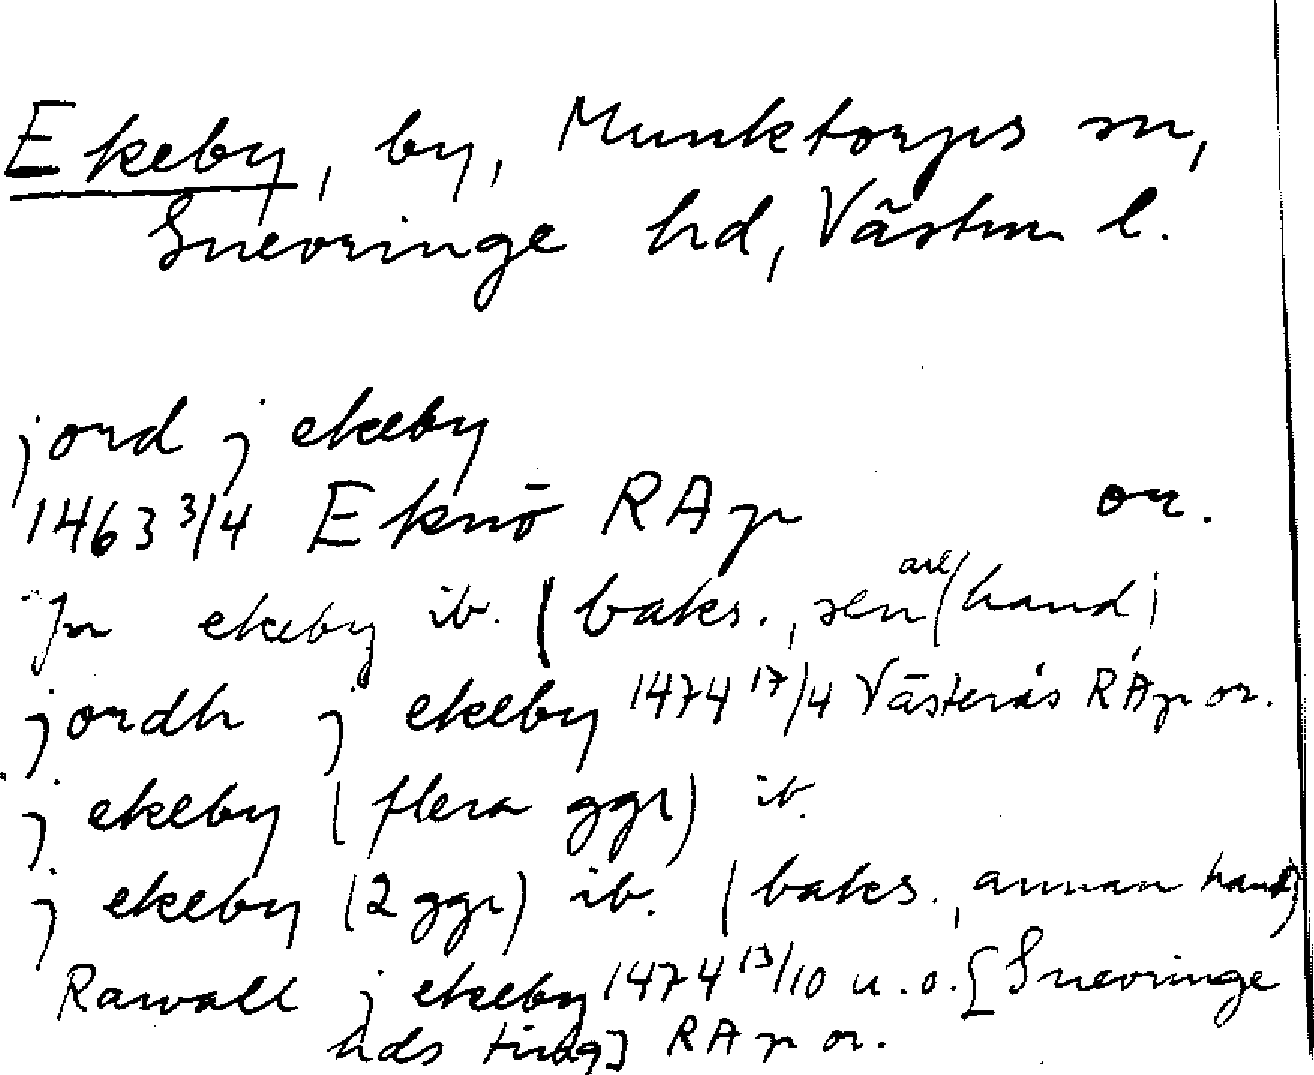 Ekeby, by, Munktorps sn,
Snevringe hd, Västm l.
jord j ekeby
1463 3/4 Eknö RAp or.
Jn ekeby ib. (baks., sen are hand)
jordh j ekeby 1474 17/4 Västerås RAp or.
j ekeby (flera ggr) ib.
j ekeby (2 ggr) ib. (baks., annan hand)
Rawall j ekeby 1474 13/10 u.o. [Snevringe
hds ting] RAp or.